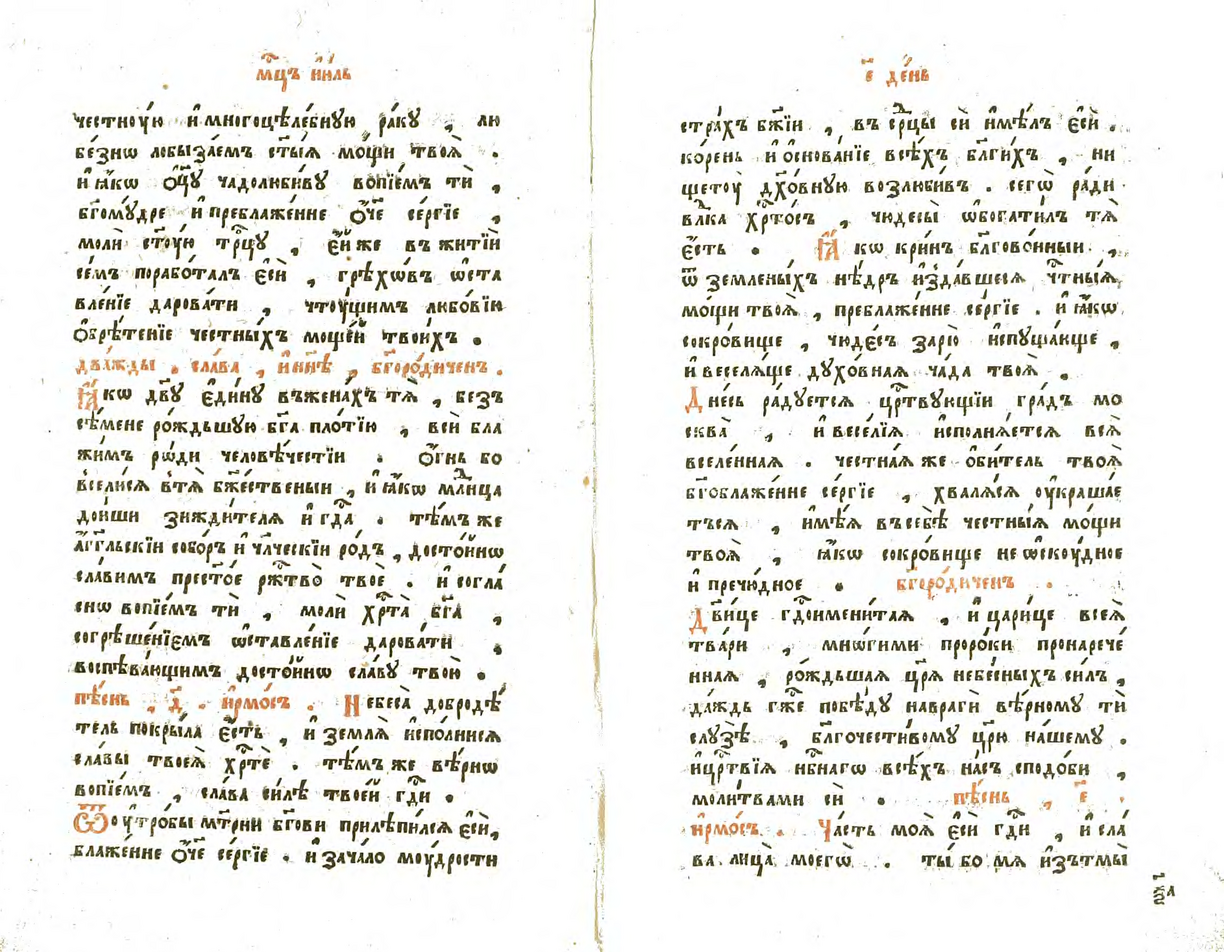 мⷭ҇цъ ію҆ль
честнꙋ́ю и҆ многоцѣле́бнꙋю ра́кꙋ , лю
бе́знѡ лобыза́емъ ст҃ы́ѧ мо́щи твоѧ̀ .
и҆ ꙗ҆́кѡ ѻ҆ц҃ꙋ̀ чадолюби́вꙋ вопїе́мъ тѝ ,
бг҃омꙋ́дре и҆ преблаже́нне ѻ҆́ч҃е се́ргїе ,
молѝ ст҃ꙋ́ю трⷪ҇цꙋ , є҆́йже въ житїѝ
се́мъ порабо́талъ є҆сѝ , грѣхѡ́въ ѡ҆ста
вле́нїе дарова́ти , чтꙋ́щимъ любо́вїю
ѻ҆брѣ́тенїе че́стныхъ моще́й твои́хъ .
два́жды . сла́ва , и҆ ны́нѣ , бг҃оро́диченъ .
Ꙗ҆́кѡ двꙋ̀ є҆ди́нꙋ въ жена́хъ тѧ̀ , без̾
сѣ́мене ро́ждьшꙋю бг҃а пло́тїю , всѝ бла
жи́мъ ро́ди человѣ́честїи . Ѻ҆́гнь бо
всели́сѧ в̾ тѧ̀ бж҃е́ственыи , и҆ ꙗ҆́кѡ млⷣнца
дои́ши зижди́телѧ и҆ гдⷭ҇а . тѣ́мъ же
а҆́гг҃льскїи собо́ръ и҆ чл҃ческїи ро́дъ , досто́йнѡ
сла́вимъ прест҃о́е ржⷭ҇тво̀ твоѐ . и҆ согла́
снѡ вопїе́мъ тѝ , молѝ хрⷭ҇та̀ бг҃а ,
согрѣше́нїемъ ѡ҆ставле́нїе дарова́ти
воспѣва́ющимъ досто́йнѡ сла́вꙋ твою̀ .
пѣ́снь , д҃ . і҆рмо́съ . Небеса̀ добродѣ́
тель покры́ла є҆́сть , и҆ землѧ̀ и҆спо́лнисѧ
сла́вы твоеѧ̀ хрⷭ҇тѐ . тѣ́мъ же вѣ́рнѡ
вопїе́мъ , сла́ва си́лѣ твое́й гдⷭ҇и .
Ѿ оу҆тро́бы мт҃рни бг҃ови прилѣпи́лсѧ є҆сѝ,
блаже́нне ѻ҆́ч҃е се́ргїе . и҆ зача́ло моу́дрости
е҃ де́нь
стра́хъ бж҃їи , въ срⷣцы сѝ и҆мѣ́лъ є҆сѝ .
ко́рень и҆ ѻ҆снова́нїе всѣ́хъ бл҃ги́хъ , ни
щетоу̀ дх҃о́внꙋю возлюби́въ . сегѡ̀ ра́ди
влⷣка хрⷭ҇то́съ , чюдесы̀ ѡ҆богати́лъ тѧ̀
є҆́сть . Ꙗ҆́кѡ кри́нъ бл҃гово́нныи ,
ѿ земле́ныхъ нѣ́дръ и҆зда́вшесѧ чⷭ҇тны́ѧ
мо́щи твоѧ̀ , преблаже́нне се́ргїе . и҆ ꙗ҆́кѡ
сокро́вище , чюде́съ зарю̀ и҆спꙋща́юще ,
и҆ веселѧ́ще дꙋхо́внаѧ ча́да твоѧ̀ .
Дне́сь ра́дꙋетсѧ црⷭ҇твꙋ́ющїи гра́дъ мо
сква̀ , и҆ весе́лїѧ и҆сполнѧ́етсѧ всѧ̀
вселе́ннаѧ . честна́ѧ же ѻ҆би́тель твоѧ̀
бг҃облаже́нне се́ргїе , хва́лѧсѧ оу҆краша́е
тьсѧ , и҆мѣ́ѧ въ себѣ̀ честны́ѧ мо́щи
твоѧ̀ , ꙗ҆́кѡ сокро́вище неѡ҆скоу́дное
и҆ пречю́дное . бг҃оро́диченъ .
Дв҃ице гдⷭ҇оимени́таѧ , и҆ цари́це всеѧ̀
тва́ри , мно́гими проро́ки пронарече́
ннаѧ , ро́ждьшаѧ цр҃ѧ̀ небе́сныхъ си́лъ ,
да́ждь гж҃е побѣ́дꙋ на враги̏ вѣ́рномꙋ тѝ
слꙋзѣ̀ , бл҃гочести́вомꙋ цр҃ю̀ на́шемꙋ .
и҆ црⷭ҇твїѧ нбⷭ҇нагѡ всѣ́хъ на́съ сподо́би ,
моли́твами сѝ . пѣ́снь , е҃ .
і҆рмо́съ . Ча́сть моѧ̀ є҆сѝ гдⷭ҇и , и҆ сла́
ва лица̀ моегѡ̀ . ты́ бо мѧ̀ и҆зъ тмы̀